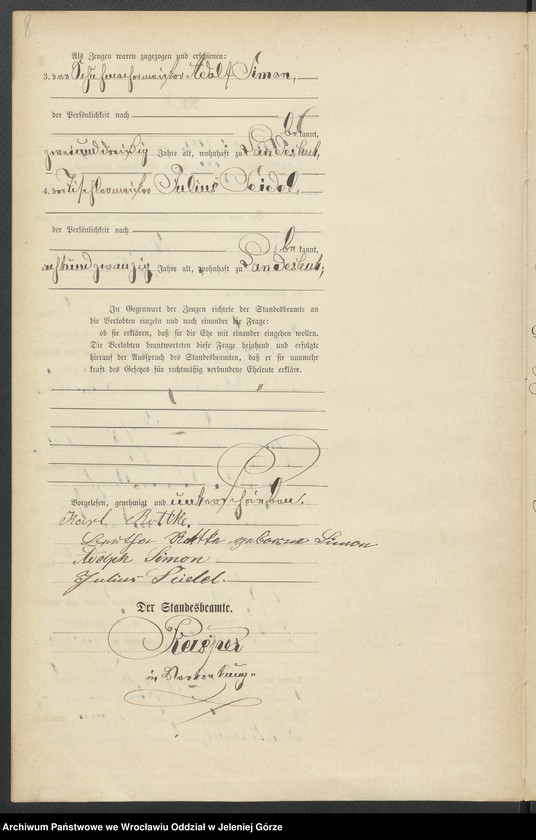 8
Als Zeugen waren zugezogen und erschienen:
3. der Schuhmachermeister Adolf Simon,
der Persönlichkeit nach
bekannt,
zweiunddreißig Jahre alt, wohnhaft zu Landeshut,
4. der Tischlermeister Julius Seidel,
der Persönlichkeit nach
bekannt,
achtundzwanzig Jahre alt, wohnhaft zu Landeshut;
In Gegenwart der Zeugen richtete der Standesbeamte an
die Verlobten einzeln und nach einander die Frage:
ob sie erklären, daß sie die Ehe mit einander eingehen wollen.
Die Verlobten beantworteten diese Frage bejahend und erfolgte
hierauf der Ausspruch des Standesbeamten, daß er sie nunmehr
kraft des Gesetzes für rechtmäßig verbundene Eheleute erkläre.
Vorgelesen, genehmigt und unterschrieben.
Karl Rottke.
Rottke geborene Simon
Adolph Simon
Julius Seidel.
Der Standesbeamte.
Kasper
in Vertretung.
Archiwum Państwowe we Wrocławiu Oddział w Jeleniej Górze